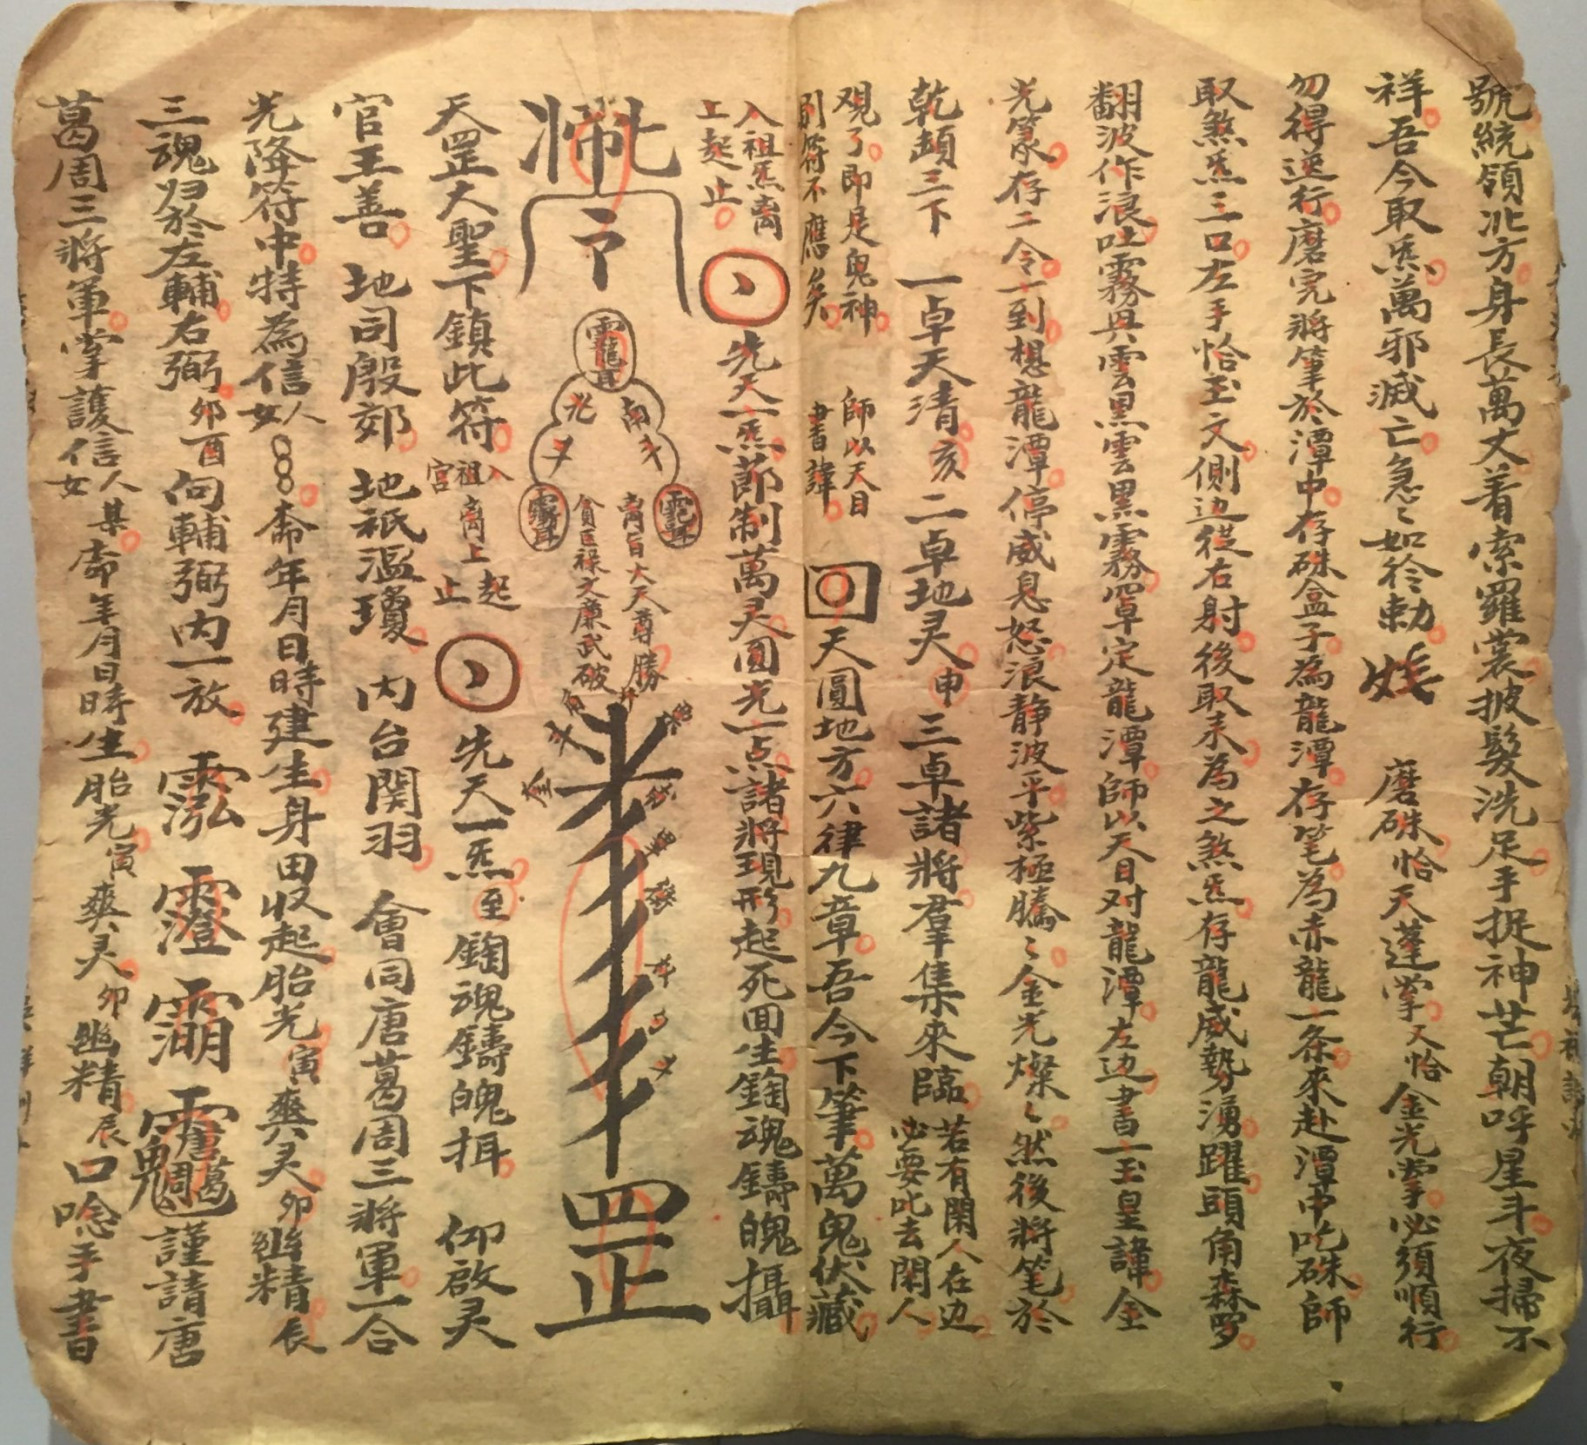 號統領北方身長萬丈着索羅裳披髮洗足手捉神芒朝呼星斗夜掃不
祥吾今取炁萬邪滅亡急〻如令勅 磨硃恰天蓬掌又恰金光掌必須順行
勿得逆行磨完將筆於潭中存硃盒子為龍潭存笔為赤龍一条來赴潭中吃硃師
取煞炁三口左手恰玉文側边從右射後取来為之煞炁存龍威勢湧躍頭角森罗
翻波作浪吐霧興雲黑雲黑霧罩定龍潭師以天目对龍潭左边書一玉皇諱金
光篆存二令一到想龍潭停威息怒浪静波平紫極騰〻金光燦〻然後將笔於
乾顛三下 一卓天清亥二卓地灵申三卓諸將羣集來臨若有閑人在边
必要叱去閑人
观了即是鬼神 師以天目
則符不應矣 書諱
天圓地方六律九章吾今下筆萬鬼伏藏
入祖炁离
上起止
先天一炁節制萬灵圓光一点諸將現形起死回生鍧魂鑄魄攝
南斗
北斗
貪巨祿文廉武破
罡
天罡大聖下鎮此符入祖
宮离上起
止
先天一炁至鍧魂鑄魄揖 仰啟灵
官王善 地司殷郊 地祇溫瓊 内台関羽 會同唐葛周三將軍一合
光降符中特為信人
女 命年月日時建生身田収起胎光寅爽灵卯幽精辰
三魂归於左輔右弼卯酉向輔弼内一放 謹請唐
葛周三將軍掌護信人
女某命年月日時生胎光寅爽灵卯幽精辰口唸手書